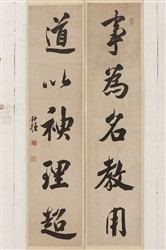 事為名教用
道以神理超